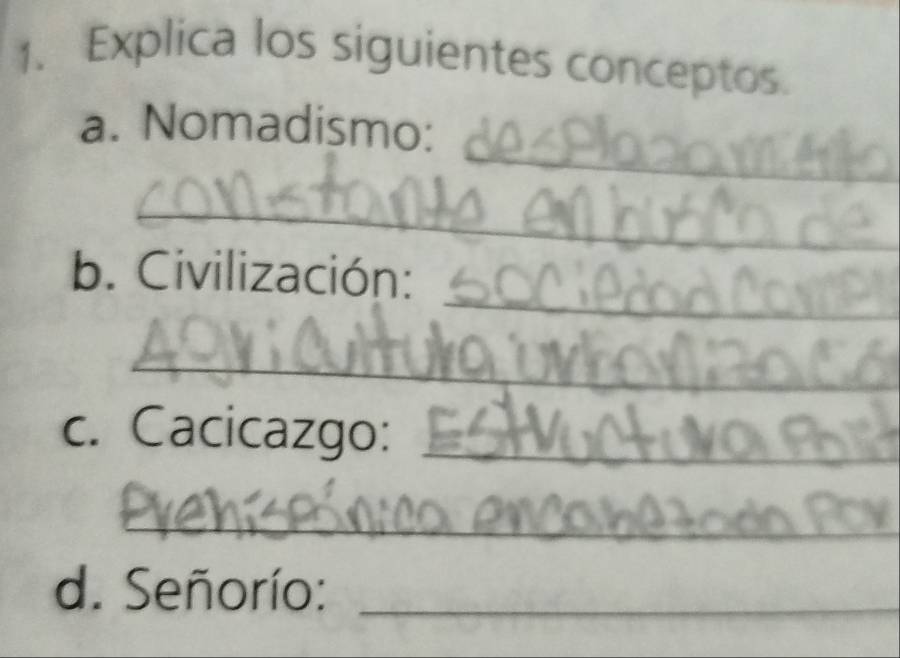 1. Explica los siguientes conceptos.
a. Nomadismo: desplazamiento
constante en busca de
b. Civilización: Sociedad
Agricultura
c. Cacicazgo: Estructura
Prehispánica encabezada por
d. Señorío: